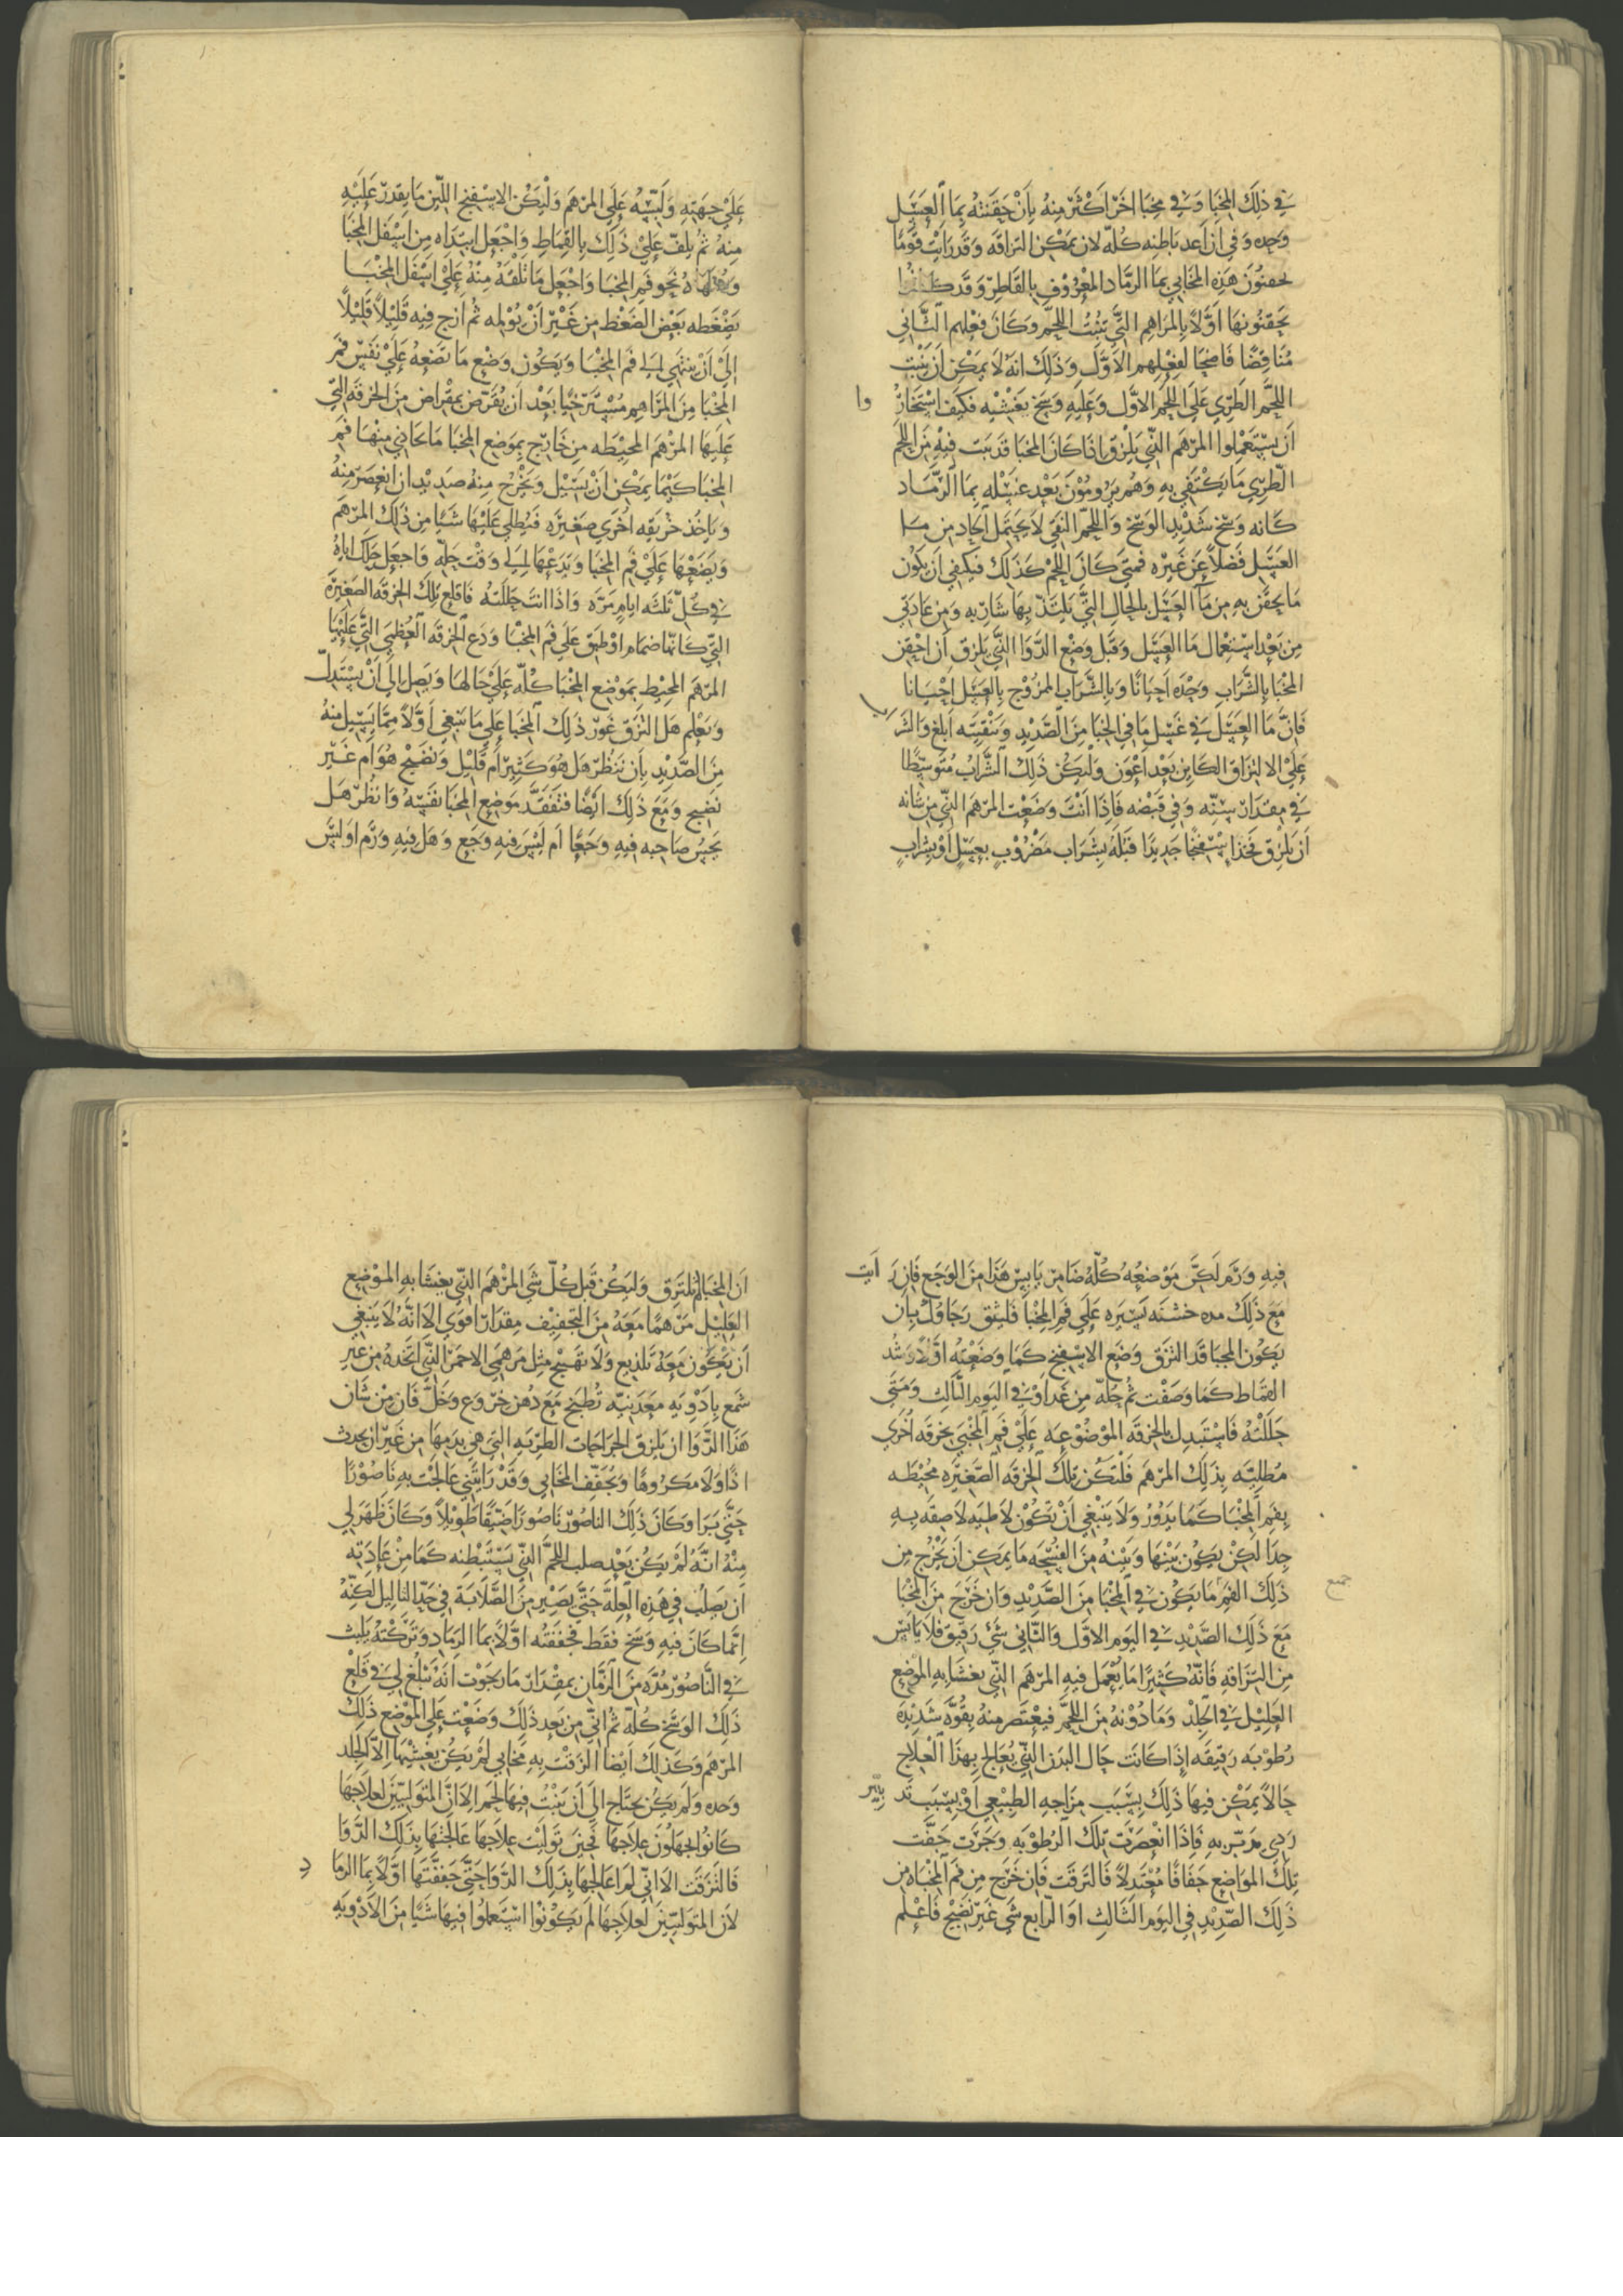 في ذلك المخبا وفي مخبا اخر اكثر منه بان حقنته بماء العسل
وحده وفي ان اعد باطنه كله لان يمكن التزاقه وقد رايت قوما
يحقنون هذه المخابي بماء الرماد المعروف بالقاطر وقد كانوا
يحقنونها اولا بالمراهم التي تنبت اللحم وكان فعلهم الثاني
مناقضا فاضحا لفعلهم الاول وذلك انه لا يمكن ان ينبت
اللحم الطري على اللحم الاول وعليه وسخ يغشيه فكيف استخاروا
ان يستعملوا المرهم الذي يلزق اذا كان المخبا قد نبت فيه من اللحم
الطري ما يكتفي به وهم يرومون بعد غسله بماء الرماد
كانه وسخ شديد الوسخ واللحم النقي لا يحتمل الحاد من ما
العسل فضلا عن غيره فمتى كان اللحم كذلك فيكفي ان يكون
ما يحقن به من ماء العسل بالحال التي يلتذ بها شاربه ومن عادتي
من بعد استعمال ماء العسل وقبل وضع الدوا الذي يلزق ان احقن
المخبا بالشراب وحده احيانا وبالشراب الممزوج بالعسل احيانا
فان ماء العسل في غسل ما في المخبا من الصديد وتنقيته ابلغ والشراب
على الالتزاق الكاين بعد اعون وليكن ذلك الشراب متوسطا
في مقدار سنه وفي قبضه فاذا انت وضعت المرهم الذي من شانه
ان يلزق فخذ اسفنجا جديدا فبله بشراب مضروب بعسل او بشراب
على جهته ولبسه على المرهم وليكن الاسفنج اللين ما يقدر عليه
منه ثم يلف على ذلك بالقماط واجعل ابتداه من اسفل المخبا
وانتهاه نحو فم المخبا واجعل ما تلفه منه على اسفل المخبا
يضغطه بعض الضغط من غير ان يولمه ثم ازج فيه قليلا قليلا
الى ان ينتهي الى فم المخبا ويكون وضع ما تضعه على نفس فم
المخبا من المراهم مسترخيا بعد ان يقرض بمقراض من الخرقه التي
عليها المرهم المحيطه من خارج بموضع المخبا ما يحاذي منها فم
المخبا كيما يمكن ان يسيل ويخرج منه صديد ان انعصر منه
وياخذ خرقه اخرى صغيره فيطلي عليها شيا من ذلك المرهم
ويضعها على فم المخبا ويدعها الى وقت حله واجعل حلك اياه
في كل ثلثه ايام مره واذا انت حللته فاقلع تلك الخرقه الصغيره
التي كانها ضمام او طبق على فم المخبا ودع الخرقه العظمي التي عليها
المرهم المحيط بموضع المخبا كله على حالها ويصل الى ان يستدل
ويعلم هل التزق غور ذلك المخبا على ما ينبغي اولا مما يسيل منه
من الصديد بان تنظر هل هو كثير ام قليل ونضيج هو ام غير
نضيج ومع ذلك ايضا فتفقد موضع المخبا نفسه وانظر هل
يحس صاحبه فيه وجعا ام ليس فيه وجع وهل فيه ورم او ليس
فيه ورم لكن موضعه كله ضامر يابس هذا من الوجع فان رايت
مع ذلك مده خشنه يسيره على فم المخبا فلتثق رجاوك بان
يكون المخبا قد التزق وضع الاسفنج كما وضعته اولا وشد
القماط كما وصفت ثم حله من غد او في اليوم الثالث ومتى
حللته فاستبدل بالخرقه الموضوعه على فم المخبى بخرقه اخرى
مطليه بذلك المرهم فلتكن تلك الخرقه الصغيره محيطه
بفم المخبا كما يدور ولا ينبغي ان تكون لاطيه لاصقه به
جدا لكن يكون بينها وبينه من الفسحه ما يمكن ان يخرج من
ذلك الفم جميع ما يكون في المخبا من الصديد وان خرج من المخبا
مع ذلك الصديد في اليوم الاول والثاني شي رقيق فلا يايس
من التزاقه فانه كثيرا ما يعمل فيه المرهم الذي يغشا به الموضع
العليل في الجلد وما دونه من اللحم فيعتصر منه بقوه شديده
رطوبه رقيقه اذا كانت حال البدن الذي يعالج بهذا العلاج
حالا يمكن فيها ذلك بسبب مزاجه الطبيعي او بسبب تدبير
ردي مر به فاذا انعصرت تلك الرطوبه وجرت جفت
تلك المواضع جفافا معتدلا فالتزقت فان خرج من فم المخباه من
ذلك الصديد في اليوم الثالث او الرابع شي غير نضيج فاعلم
ان المخبا لم يلتزق وليكن قبل كل شي المرهم الذي يغشا به الموضع
العليل مرهما معه من التجفيف مقدار اقوى الا انه لا ينبغي
ان يكون معه تلذيع ولا تهيج مثل مرهمي الاحمر الذي اتخذه من غير
شمع بادويه معدنيه تطبخ مع دهن خروع وخل فان من شان
هذا الدوا ان يلزق الجراحات الطريه التي هي بدمها من غير ان يحدث
اذا ولا مكروها ويجفف المخابي وقد رايتني عالجت به ناصورا
حتى برا وكان ذلك الناصور ناصورا ضيقا طويلا وكان ظهر لي
منه انه لم يكن بعد صلب اللحم الذي يستبطنه كما من عادته
ان يصلب في هذه العله حتى يصير من الصلابة في حد الثاليل لكنه
انما كان فيه وسخ فقط فجففته اولا بماء الرماد وتركته يلبث
في الناصور مده من الزمان بمقدار ما رجوت انه تبلغ لي في قلع
ذلك الوسخ كله ثم اني من بعد ذلك وضعت على الموضع ذلك
المرهم وكذلك ايضا الزقت به مخابي لم يكن يغشيها الا الجلد
وحده ولم يكن يحتاج الى ان ينبت فيها لحم الا ان المتوليين لعلاجها
كانوا يجهلون علاجها فحين توليت علاجها عالجتها بذلك الدوا
فالتزقت الا اني لم اعالجها بذلك الدوا حتى جففتها اولا بماء الرماد
لان المتوليين لعلاجها لم يكونوا استعملوا فيها شيا من الادويه